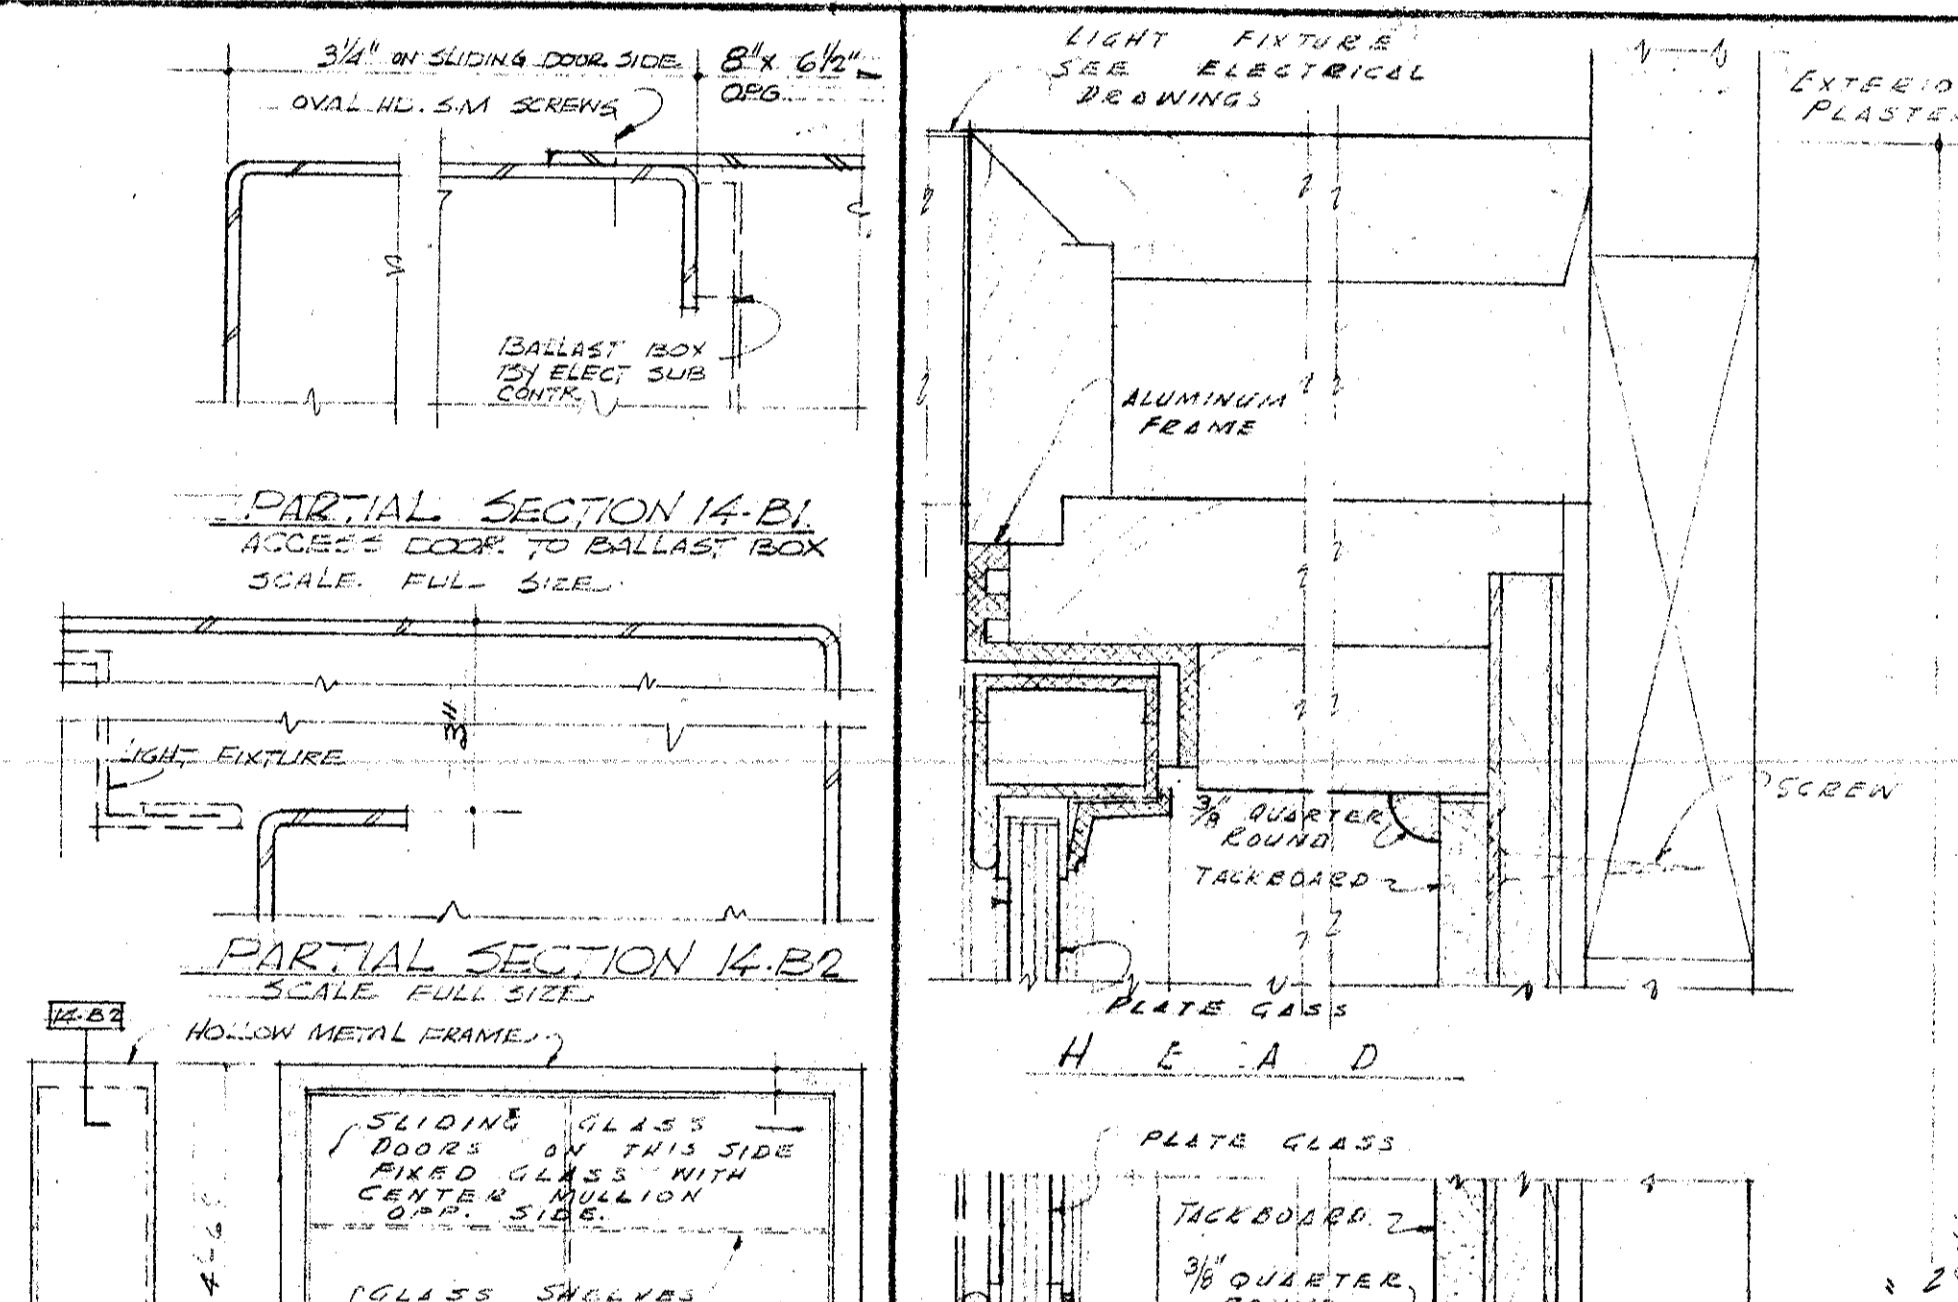 3¼" ON SLIDING DOOR SIDE
8" x 6½"
OPG.
OVAL HD. S.M SCREWS
BALLAST BOX
BY ELECT SUB
CONTR.
PARTIAL SECTION 14-B1
ACCESS DOOR TO BALLAST BOX
SCALE FULL SIZE
3"
LIGHT FIXTURE
PARTIAL SECTION 14-B2
SCALE FULL SIZE
14-B2
HOLLOW METAL FRAME
SLIDING GLASS
DOORS ON THIS SIDE
FIXED GLASS WITH
CENTER MULLION
OPP. SIDE.
GLASS SHELVES
LIGHT FIXTURE
SEE ELECTRICAL
DRAWINGS
EXTERIO
PLASTE
ALUMINUM
FRAME
3/8" QUARTER
ROUND
TACKBOARD
SCREW
PLATE GASS
HEAD
PLATE GLASS
TACKBOARD
3/8" QUARTER